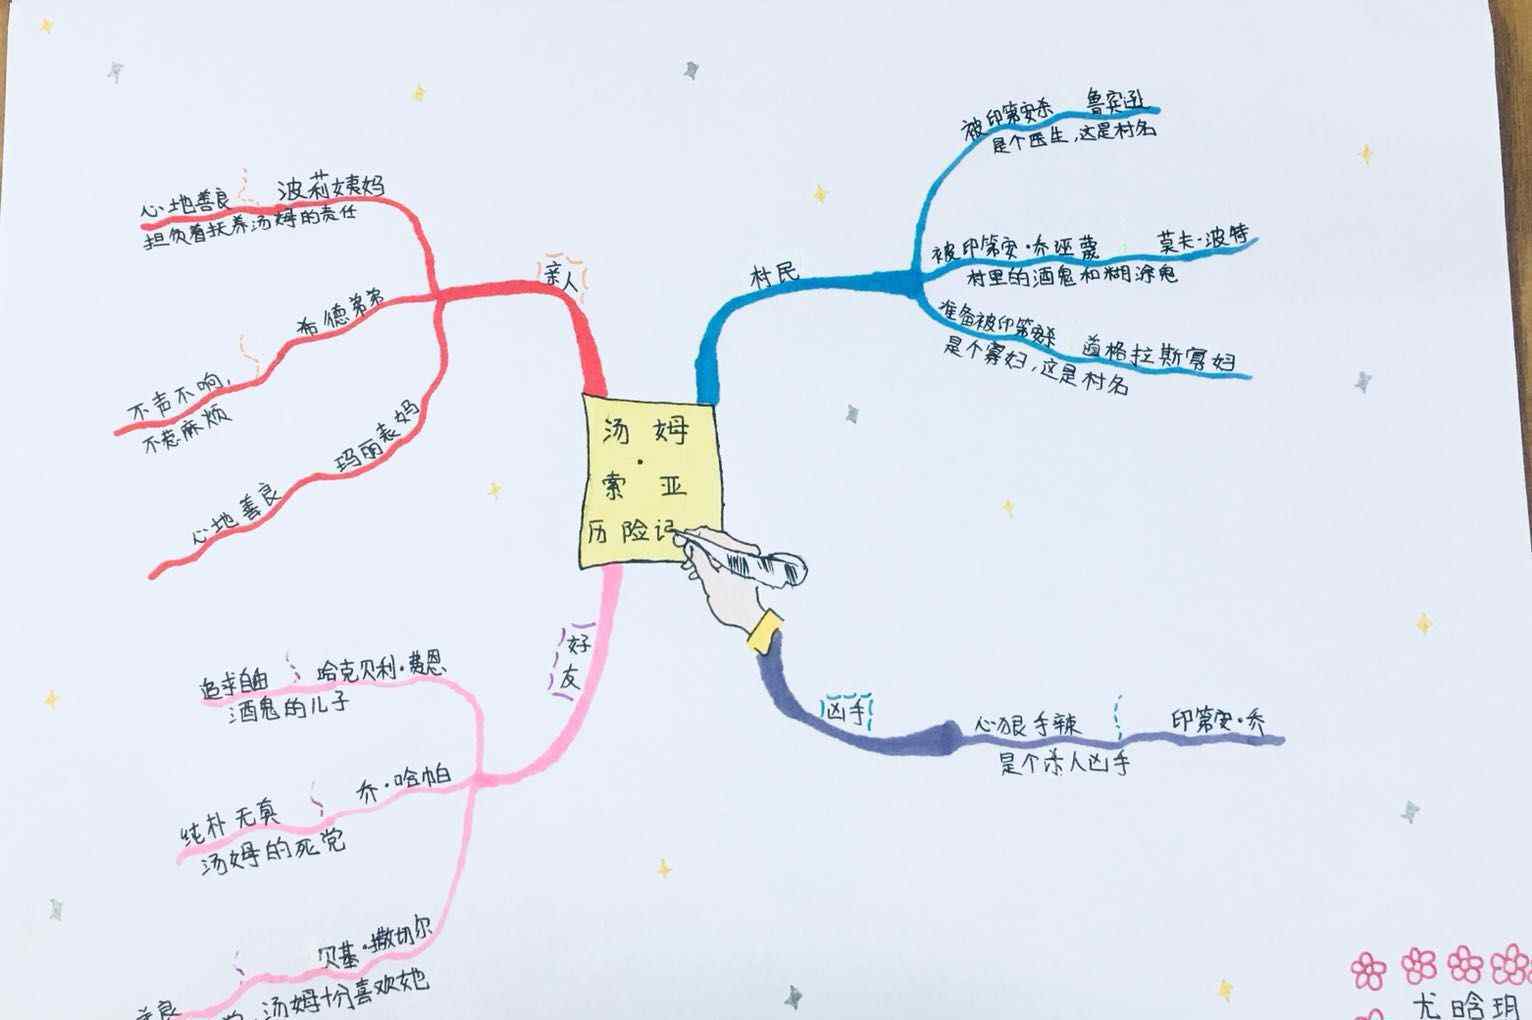 汤姆
·
索亚
历险记
亲人
波莉姨妈
心地善良
担负着抚养汤姆的责任
希德弟弟
不声不响,
不惹麻烦
玛丽表妈
心地善良
村民
被印第安杀 鲁宾逊
是个医生,这是村名
被印第安·乔诬蔑 莫夫·波特
村里的酒鬼和糊涂鬼
准备被印第安杀 道格拉斯寡妇
是个寡妇,这是村名
好友
追求自由 哈克贝利·费恩
酒鬼的儿子
纯朴无真 乔·哈帕
汤姆的死党
贝基·撒切尔
善良
汤姆十分喜欢她
凶手
心狠手辣 印第安·乔
是个杀人凶手
尤晗玥